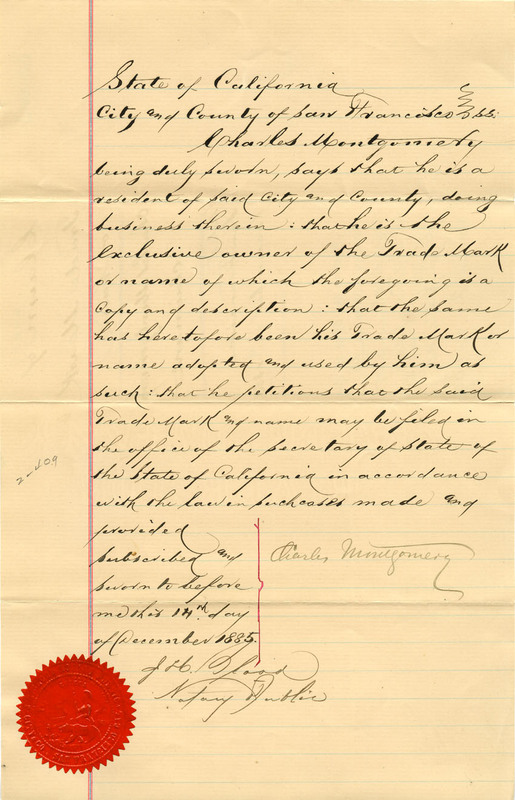 State of California
City and County of San Francisco } ss:
Charles Montgomery
being duly sworn, says that he is a
resident of said City and County, doing
business therein: that he is the
exclusive owner of the Trade Mark
or name of which the foregoing is a
copy and description: that the same
has heretofore been his Trade Mark or
name adopted and used by him as
such: that he petitions that the said
Trade Mark and name may be filed in
the office of the secretary of state of
the State of California in accordance
with the law in such cases made and
provided
subscribed and
sworn to before
me this 14th day
of December 1885.
Charles Montgomery
J. H.
Notary Public
2-409